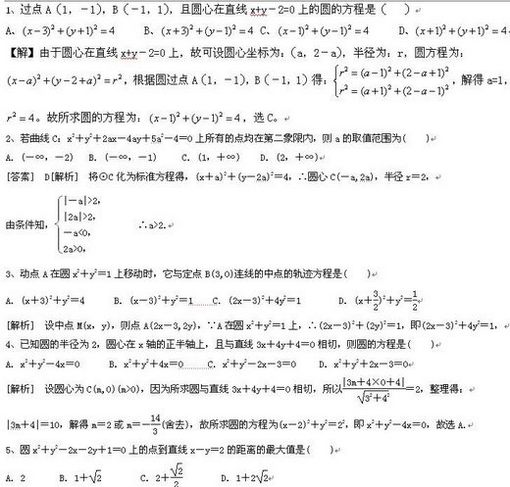 1、过点A(1，-1)，B(-1，1)，且圆心在直线x+y-2=0上的圆的方程是（ ）
A、(x-3)²+(y+1)²=4 B、(x+3)²+(y-1)²=4 C、(x-1)²+(y-1)²=4 D、(x+1)²+(y+1)²=4
【解】由于圆心在直线x+y-2=0上，故可设圆心坐标为：(a，2-a)，半径为：r，圆方程为：
(x-a)²+(y-2+a)²=r²，根据圆过点A(1，-1)，B(-1，1)得：{r²=(a-1)²+(2-a+1)² r²=(a+1)²+(2-a-1)²，解得a=1，
r²=4。故所求圆的方程为：(x-1)²+(y-1)²=4，选C。
2、若曲线C：x²+y²+2ax-4ay+5a²-4=0上所有的点均在第二象限内，则a的取值范围为( )
A. (-∞，-2) B. (-∞，-1) C. (1，+∞) D. (2，+∞)
[答案] D[解析] 将⊙C化为标准方程得，(x+a)²+(y-2a)²=4，∴圆心C(-a,2a)，半径r=2，
由条件知，{|-a|>2, |2a|>2, -a<0, 2a>0, ∴a>2.
3、动点A在圆x²+y²=1上移动时，它与定点B(3,0)连线的中点的轨迹方程是( )
A. (x+3)²+y²=4 B. (x-3)²+y²=1 C. (2x-3)²+4y²=1 D. (x+3/2)²+y²=1/2
[解析] 设中点M(x，y)，则点A(2x-3,2y)，∵A在圆x²+y²=1上，∴(2x-3)²+(2y)²=1，即(2x-3)²+4y²=1，
4、已知圆的半径为2，圆心在x轴的正半轴上，且与直线3x+4y+4=0相切，则圆的方程是( )
A. x²+y²-4x=0 B. x²+y²+4x=0 C. x²+y²-2x-3=0 D. x²+y²+2x-3=0
[解析] 设圆心为C(m,0)(m>0)，因为所求圆与直线3x+4y+4=0相切，所以|3m+4×0+4|/√3²+4²=2，整理得：
|3m+4|=10，解得m=2或m=-14/3(舍去)，故所求圆的方程为(x-2)²+y²=2²，即x²+y²-4x=0，故选A.
5、圆x²+y²-2x-2y+1=0上的点到直线x-y=2的距离的最大值是( )
A. 2 B. 1+√2 C. 2+√2/2 D. 1+2√2